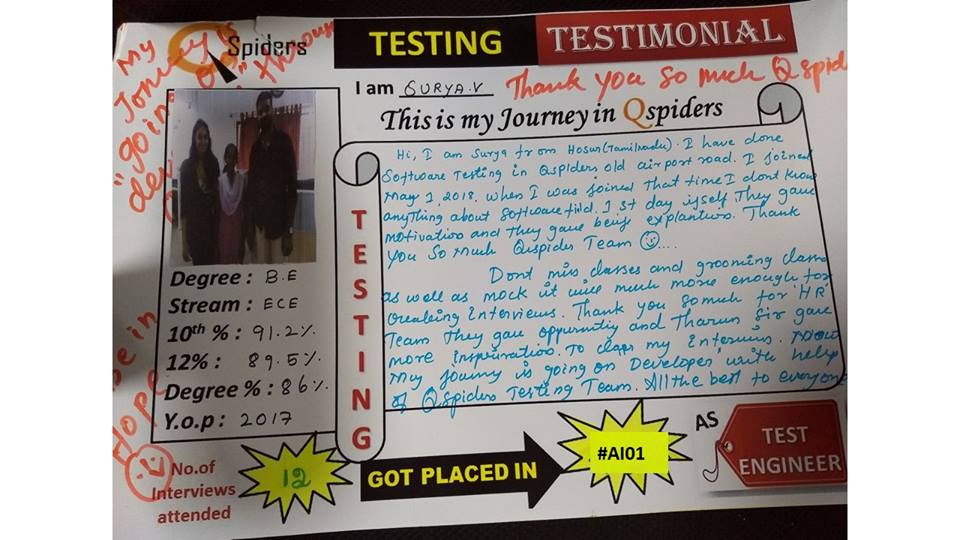 QSpiders
TESTING TESTIMONIAL
My
Jorney is
"going on"
I am SURYA.V
Thank You So much Qspid
This is my Journey in Qspiders
Hi, I am Surya from Hosur(Tamilnadu). I have done
Software Testing in Qspiders old airport road. I joined
May 1, 2018. When I was joined That time I dont know
anything about Software field. 1 st day itself They gave
motivation and they gave being explantion. Thank
You So Much Qspider Team
Dont miss classes and grooming class
as well as mock it will much more enough for
Creaking Interviews. Thank you So much for 'HR'
Team They gave and Tharun Sir gave
more To my Now
My journy is going on Developer with help
of QSpiders Testing Team. All the best to everyone
TESTING
Degree : B.E
Stream : ECE
10th % : 91.2%
12% : 89.5%
Degree % : 86%
Y.o.p : 2017
Hope
No.of
Interviews
attended
12
GOT PLACED IN
#AI01
AS
TEST
ENGINEER